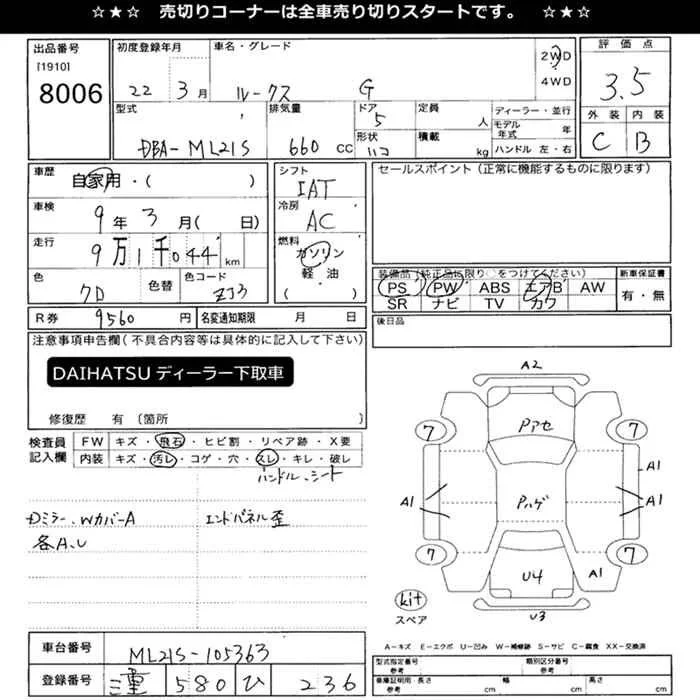 ☆★☆ 売切りコーナーは全車売り切りスタートです。 ☆★☆
出品番号
[1910]
8006
初度登録年月
22 3月
車名・グレード
ルークス G
2WD
4WD
評価点
3.5
外装 内装
C B
型式
DBA-ML21S
排気量
660 CC
ドア
5
形状
ハコ
定員
人
積載
kg
ディーラー・並行
モデル年式 年
ハンドル 左・右
車歴
自家用・( )
車検
9年3月( 日)
走行
9万1千044 km
色
クロ
色替
色コード
ZJ3
シフト
IAT
冷房
AC
燃料
ガソリン
軽油
( )
セールスポイント(正常に機能するものに限ります)
装備品(純正品に限り○をつけてください)
PS PW ABS エアB AW
SR ナビ TV カワ
新車保証書
有・無
R券 9560 円
名変通知期限 月 日
後日品
注意事項申告欄(不具合内容等は具体的に記入して下さい)
DAIHATSU ディーラー下取車
修復歴 有(箇所
検査員記入欄
FW キズ・飛石・ヒビ割・リペア跡・X要
内装 キズ・汚レ・コゲ・穴・スレ・キレ・破レ
ハンドル、シート
Dミラー、WカバーA
各A、U
エンドパネル歪
A2
Pアセ
7 7
A1
A1 A1
Pハゲ
7 7
U4
A1
U3
kit
スペア
A-キズ E-エクボ U-凹み W-補修跡 S-サビ C-腐食 XX-交換済
車台番号
ML21S-105363
登録番号
三重 580 ひ 236
型式指定番号
参考
類別区分番号
参考
車庫証明用・長さ
参考 cm
幅
cm
高さ
cm